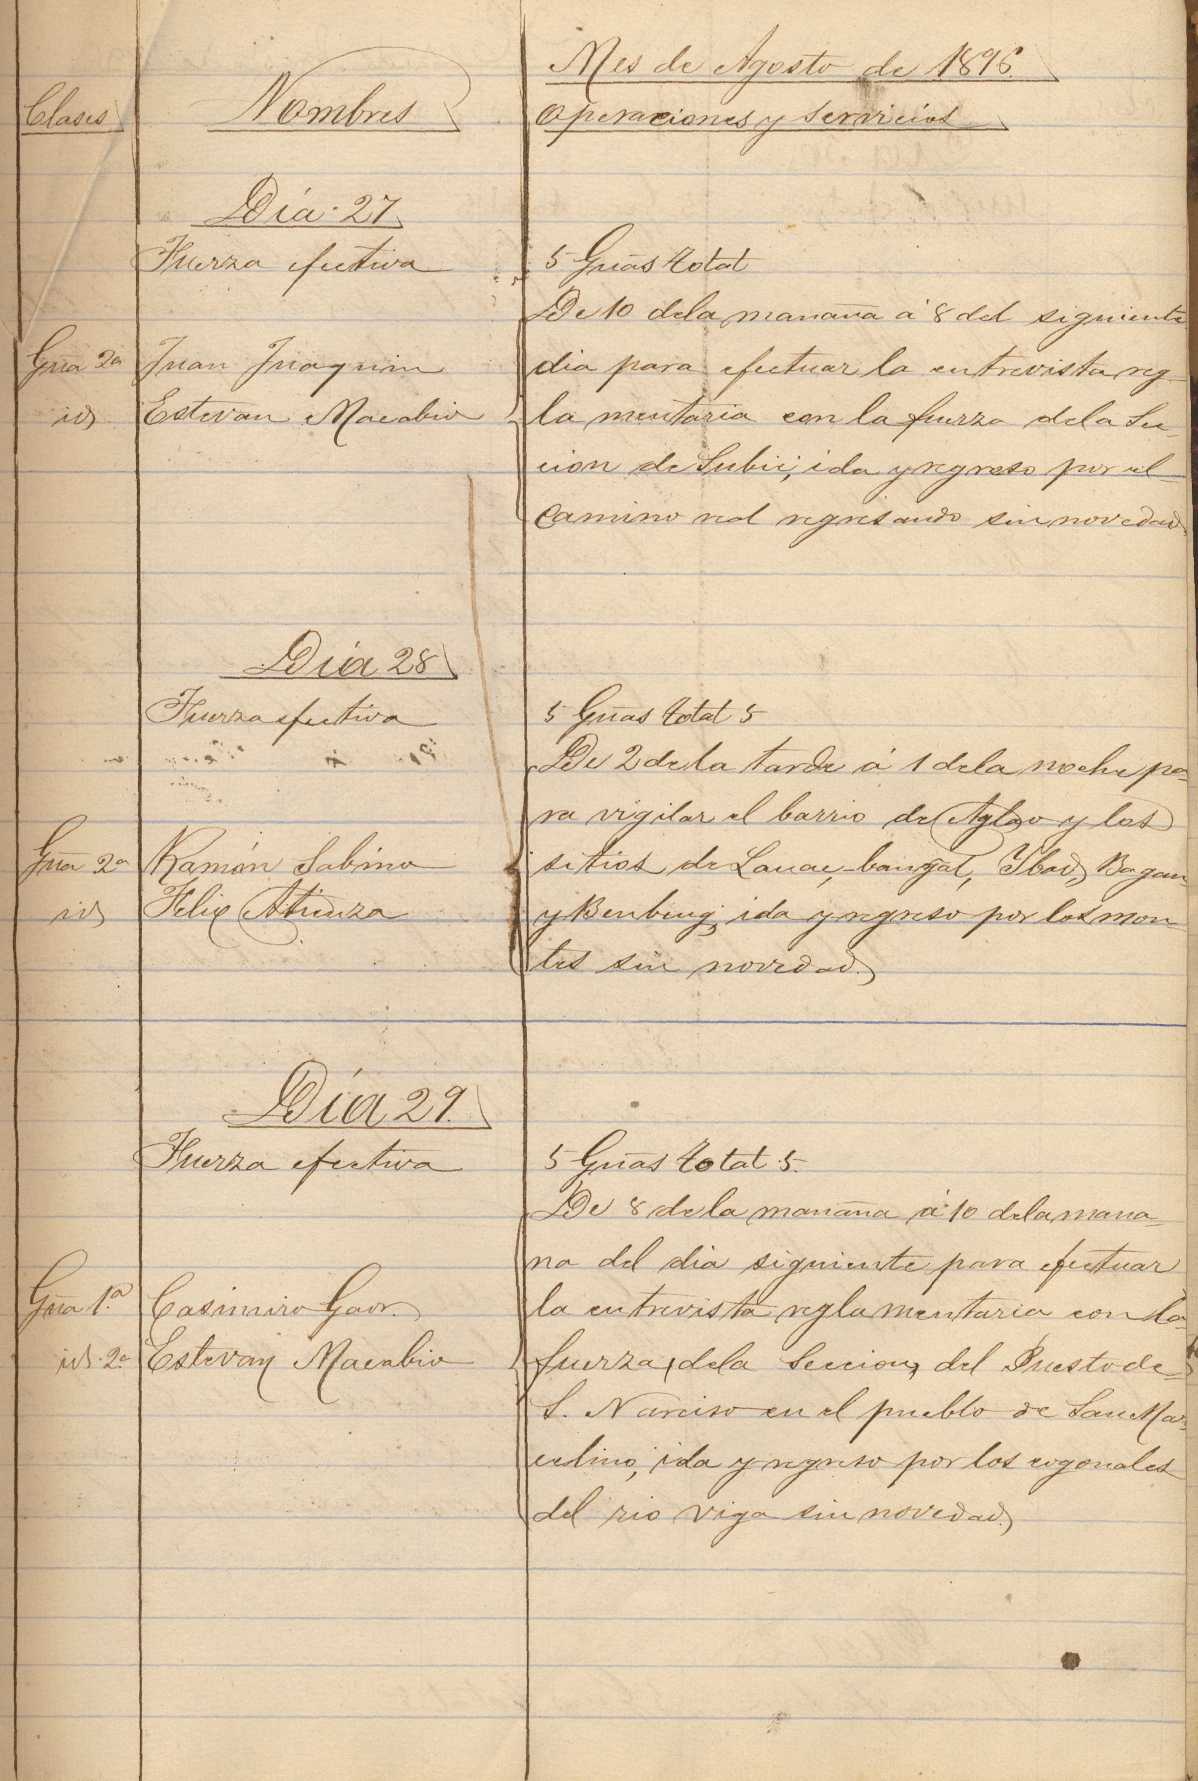 Mes de Agosto de 1896.
Clases Nombres Operaciones y servicios
Día 27
Fuerza efectiva 5 Guas total
De 10 dela manaña á 8 del siguiente
Gua 2ª Juan Juaquin dia para efectuar la entrevista reg-
id Estevan Macabio la mentaria con la fuerza dela Sec-
cion de Subic, ida y regreso por el
Camino real regresando sin novedad
Día 28
Fuerza efectiva 5 Guas total 5
De 2 de la tarde á 1 dela noche pa-
ra vigilar el barrio de Aglao y los
Gua 2ª Ramón Sabino sitios de Lauae,-bangat, Ybad, Bagan
id Felix Atienza y Benbeng; ida y regreso por los mon-
tes sin novedad.
Día 29.
Fuerza efectiva 5 Guas total 5.
De 8 de la manaña á 10 dela mana-
na del dia siguiente para efectuar
Gua 1.ª Casimiro Gaor. la entrevista reglamentaria con la
id. 2ª Estevan Macabio fuerza, dela Seccion, del Puesto de
S. Narciso en el pueblo de San Mar-
celino, ida y regreso por los cogonales
del rio viga sin novedad.